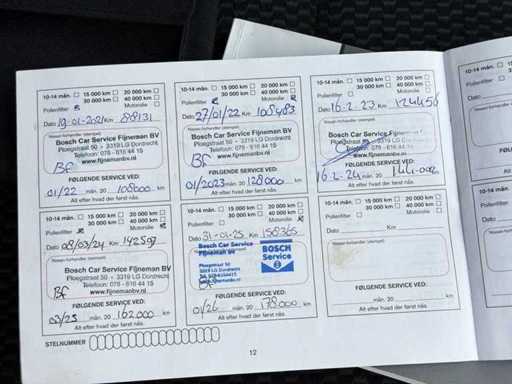 10-14 mån. 15 000 km 20 000 km
30 000 km 40 000 km
Pollenfilter Motorolie
Dato 19-01-2021 Km 88131
Nissan-forhandler (stempel)
Bosch Car Service Fijneman BV
Ploegstraat 50 - 3319 LG Dordrecht
Telefoon: 078 - 616 44 15
www.fijnemanbv.nl
FØLGENDE SERVICE VED:
01/22 mån. 20 108000 km
Alt efter hvad der først nås.
10-14 mån. 15 000 km 20 000 km
30 000 km 40 000 km
Pollenfilter Motorolie
Dato 27/01/22 Km 108483
Nissan-forhandler (stempel)
Bosch Car Service Fijneman BV
Ploegstraat 50 - 3319 LG Dordrecht
Telefoon: 078 - 616 44 15
www.fijnemanbv.nl
FØLGENDE SERVICE VED:
01/2023 mån. 20 128000 km
Alt efter hvad der først nås.
10-14 mån. 15 000 km 20 000 km
30 000 km 40 000 km
Pollenfilter Motorolie
Dato 16-2-23 Km 124456
Nissan-forhandler (stempel)
Bosch Car Service Fijneman BV
Ploegstraat 50 - 3319 LG Dordrecht
Telefoon: 078 - 616 44 15
www.fijnemanbv.nl
FØLGENDE SERVICE VED:
16-2-24 mån. 20 144.000 km
Alt efter hvad der først nås.
10-14 mån. 15 000 km 20 000 km
30 000 km 40 000 km
Pollenfilter Motorolie
Dato 08/03/24 Km 142507
Nissan-forhandler (stempel)
Bosch Car Service Fijneman BV
Ploegstraat 50 - 3319 LG Dordrecht
Telefoon: 078 - 616 44 15
www.fijnemanbv.nl
FØLGENDE SERVICE VED:
03/25 mån. 20 162000 km
Alt efter hvad der først nås.
10-14 mån. 15 000 km 20 000 km
30 000 km 40 000 km
Pollenfilter Motorolie
Dato 31-01-25 Km 158365
Bosch Car Service
Fijneman bv
Ploegstraat 50
3319 LG Dordrecht
BOSCH
Service
FØLGENDE SERVICE VED:
01/26 mån. 20 178.000 km
Alt efter hvad der først nås.
10-14 mån. 15 000 km 20 000 km
30 000 km 40 000 km
Pollenfilter Motorolie
Dato Km
Nissan-forhandler (stempel)
FØLGENDE SERVICE VED:
mån. 20 km
Alt efter hvad der først nås.
STELNUMMER
12